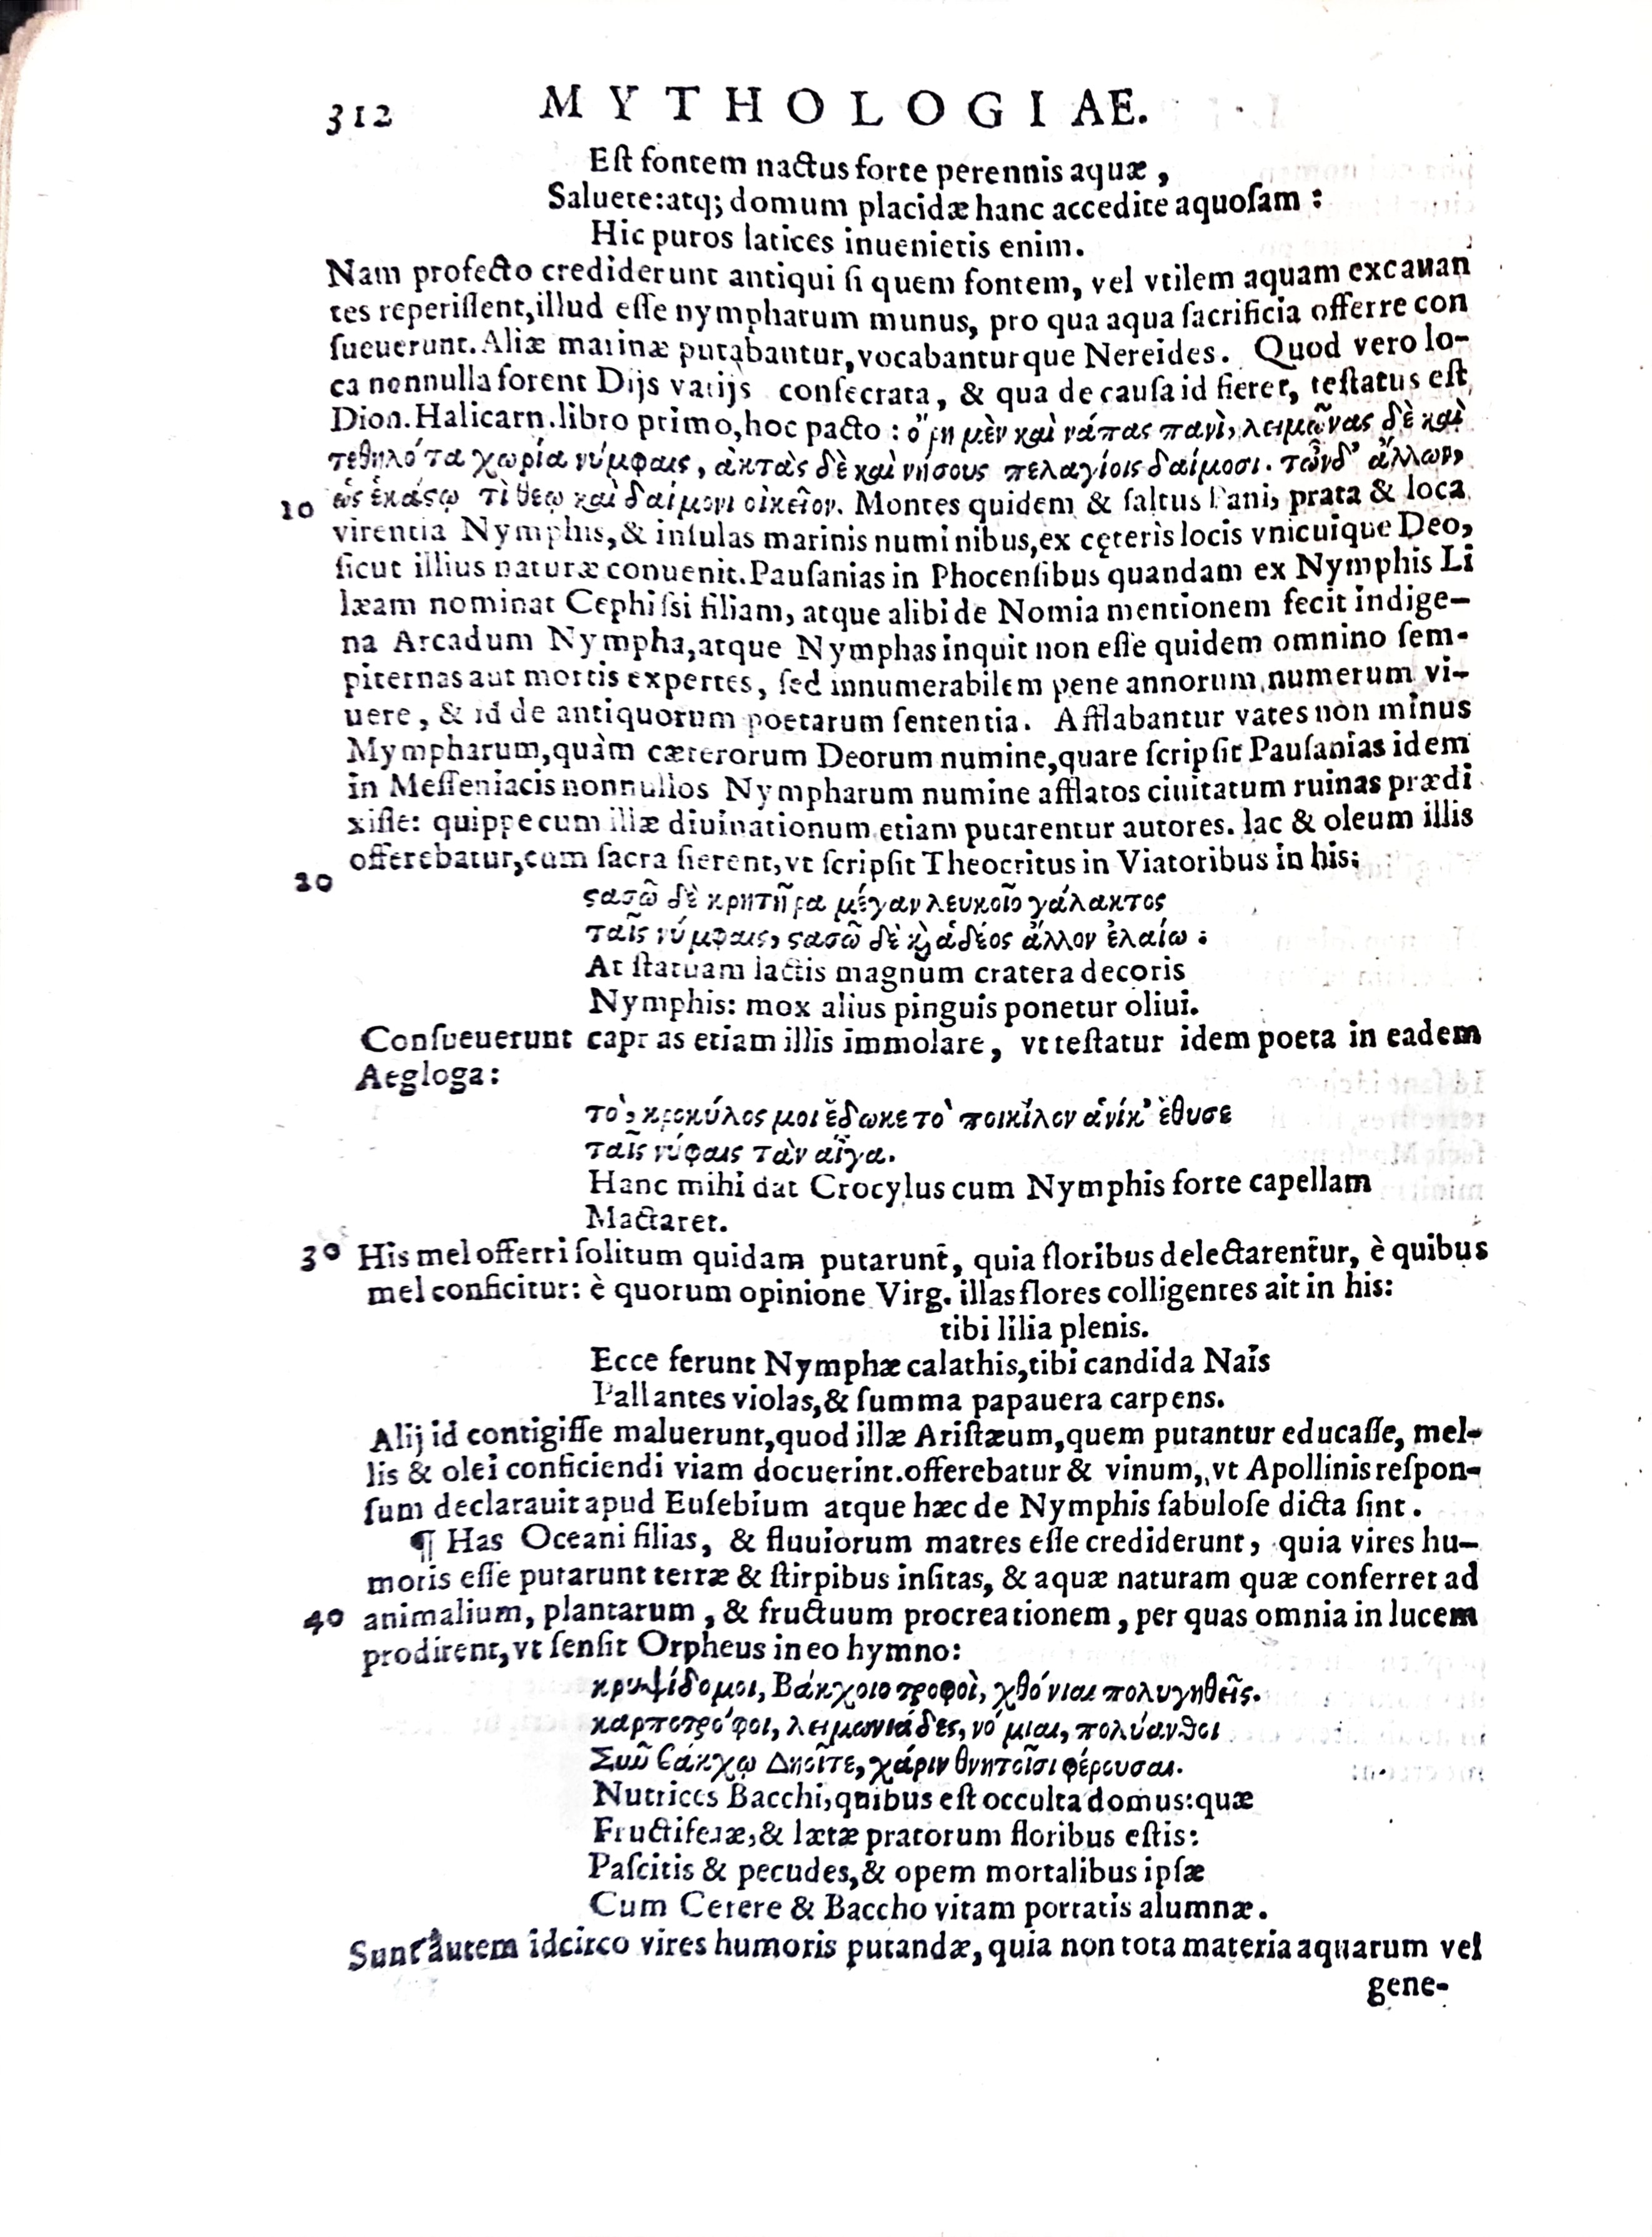 312 MYTHOLOGIAE.
Est fontem nactus forte perennis aquæ,
Saluete:atq; domum placidæ hanc accedite aquosam:
Hic puros latices inuenietis enim.
Nam profecto crediderunt antiqui si quem fontem, vel vtilem aquam excauan
tes reperissent,illud esse nympharum munus, pro qua aqua sacrificia offerre con
sueuerunt.Aliæ marinæ putabantur,vocabanturque Nereides. Quod vero lo-
ca nonnulla forent Dijs varijs consecrata, & qua de causa id fieret, testatus est
Dion.Halicarn.libro primo,hoc pacto: ὄρη μὲν καὶ νάπας πανὶ, λειμῶνας δὲ καὶ
τεθηλότα χωρία νύμφαις, ἀκτὰς δὲ καὶ νήσους πελαγίοις δαίμοσι. τῶνδ' ἄλλων,
10 ὡς ἑκάστῳ τὶ θεῳ καὶ δαίμονι οἰκεῖον. Montes quidem & saltus Pani, prata & loca
virentia Nymphis,& insulas marinis numinibus,ex cęteris locis vnicuique Deo,
sicut illius naturæ conuenit.Pausanias in Phocensibus quandam ex Nymphis Li
læam nominat Cephissi filiam, atque alibi de Nomia mentionem fecit indige-
na Arcadum Nympha,atque Nymphas inquit non esse quidem omnino sem-
piternas aut mortis expertes, sed innumerabilem pene annorum numerum vi-
uere, & id de antiquorum poetarum sententia. Afflabantur vates non minus
Mympharum,quàm cæterorum Deorum numine,quare scripsit Pausanias idem
in Messeniacis nonnullos Nympharum numine afflatos ciuitatum ruinas prædi
xisse: quippe cum illæ diuinationum etiam putarentur autores. lac & oleum illis
20 offerebatur,cum sacra fierent,vt scripsit Theocritus in Viatoribus in his:
στασῶ δὲ κρητῆρα μέγαν λευκοῖο γάλακτος
ταῖς νύμφαις, στασῶ δὲ καὶ ἁδέος ἄλλον ἐλαίω:
At statuam lactis magnum cratera decoris
Nymphis: mox alius pinguis ponetur oliui.
Consueuerunt capras etiam illis immolare, vt testatur idem poeta in eadem
Aegloga:
τὸ, κροκύλος μοι ἔδωκε τὸ ποικίλον ἁνίκ' ἔθυσε
ταῖς νύφαις τὰν αἶγα.
Hanc mihi dat Crocylus cum Nymphis forte capellam
Mactaret.
30 His mel offerri solitum quidam putarunt, quia floribus delectarentur, è quibus
mel conficitur: è quorum opinione Virg. illas flores colligentes ait in his:
tibi lilia plenis.
Ecce ferunt Nymphæ calathis,tibi candida Nais
Pallantes violas,& summa papauera carpens.
Alij id contigisse maluerunt,quod illæ Aristæum,quem putantur educasse, mel-
lis & olei conficiendi viam docuerint.offerebatur & vinum, vt Apollinis respon-
sum declarauit apud Eusebium atque hæc de Nymphis fabulose dicta sint.
¶ Has Oceani filias, & fluuiorum matres esse crediderunt, quia vires hu-
moris esse putarunt terræ & stirpibus insitas, & aquæ naturam quæ conferret ad
40 animalium, plantarum, & fructuum procreationem, per quas omnia in lucem
prodirent,vt sensit Orpheus in eo hymno:
κρυψίδομοι, Βάκχοιο τροφοὶ, χθόνιαι πολυγηθεῖς.
καρποτρόφοι, λειμωνιάδες, νόμιαι, πολύανθοι
Σὺν βάκχῳ Δηοῖτε, χάριν θνητοῖσι φέρουσαι.
Nutrices Bacchi,quibus est occulta domus:quæ
Fructiferæ,& lætæ pratorum floribus estis:
Pascitis & pecudes,& opem mortalibus ipsæ
Cum Cerere & Baccho vitam portatis alumnæ.
Sunt autem idcirco vires humoris putandæ, quia non tota materia aquarum vel
gene-